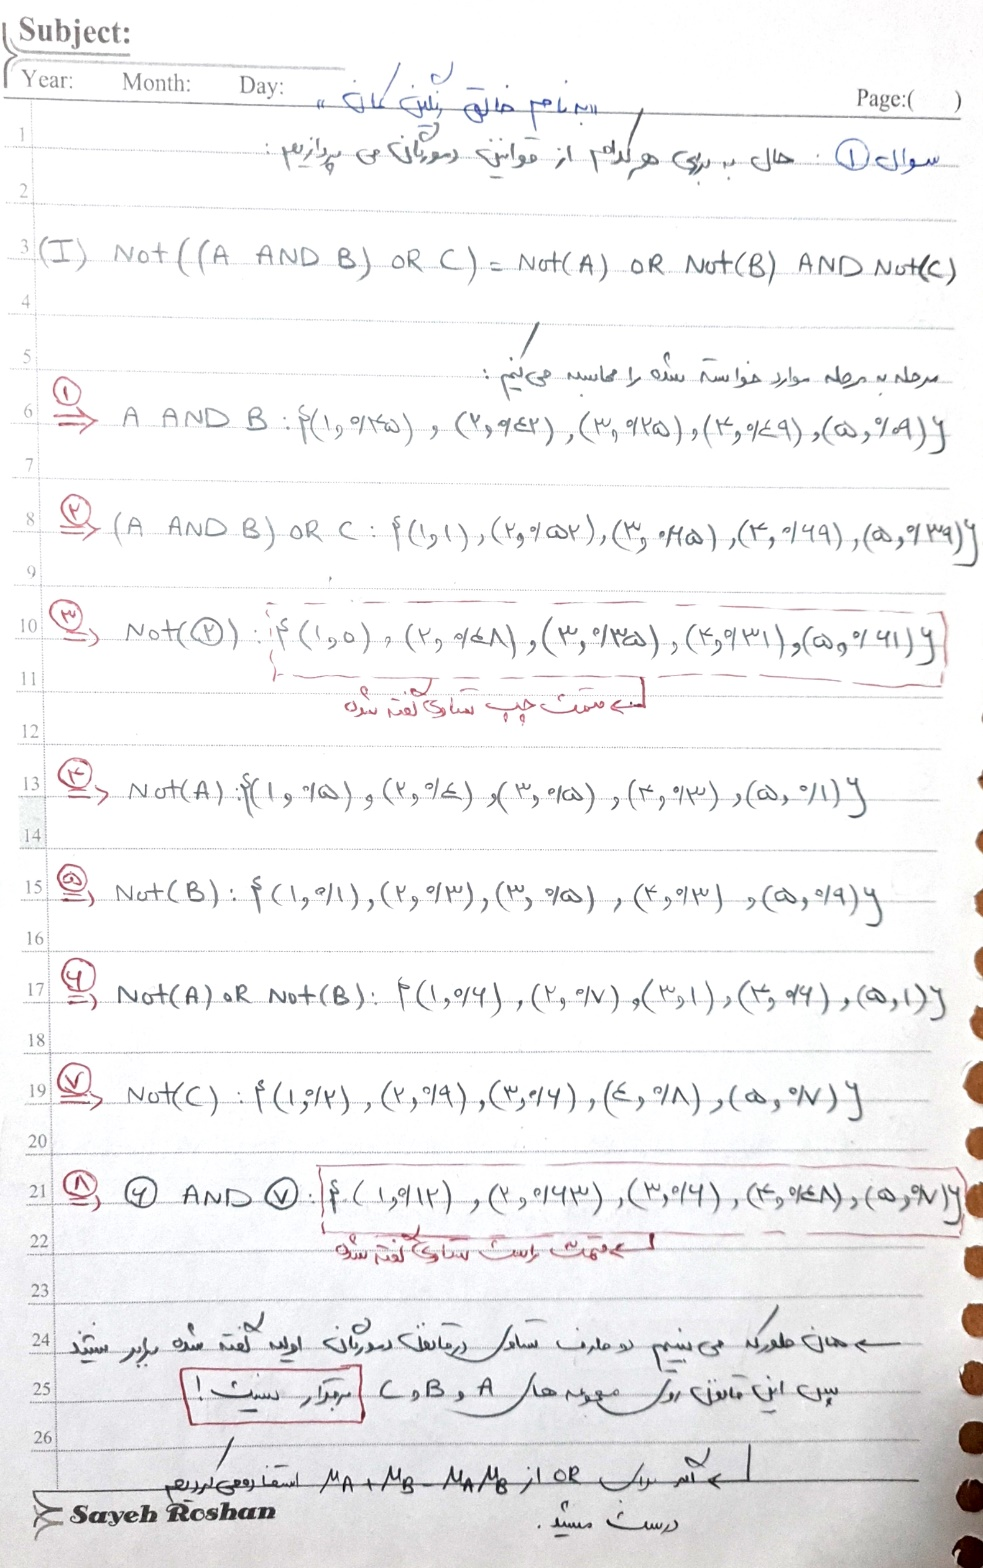 Subject:
Year: Month: Day: Page:( )
"به نام خالق رنگین کمان"
سوال ① . حال به بررسی هر کدام از قوانین دمورگان می پردازیم :
(I) Not((A AND B) OR C) = Not(A) OR Not(B) AND Not(C)
مرحله به مرحله موارد خواسته شده را محاسبه می‌کنیم :
① ⇒ A AND B : {(۱,۰/۴۵) , (۲,۰/۴۲) , (۳,۰/۲۵) , (۴,۰/۴۹) , (۵,۰/۰۹)}
② ⇒ (A AND B) OR C : {(۱,۱) , (۲,۰/۵۲) , (۳,۰/۶۵) , (۴,۰/۶۹) , (۵,۰/۳۹)}
③ ⇒ Not(②) : {(۱,۰) , (۲,۰/۴۸) , (۳,۰/۳۵) , (۴,۰/۳۱) , (۵,۰/۶۱)}
قسمت چپ تساوی گفته شده
④ ⇒ Not(A) : {(۱,۰/۵) , (۲,۰/۴) , (۳,۰/۵) , (۴,۰/۳) , (۵,۰/۱)}
⑤ ⇒ Not(B) : {(۱,۰/۱) , (۲,۰/۳) , (۳,۰/۵) , (۴,۰/۳) , (۵,۰/۹)}
⑥ ⇒ Not(A) OR Not(B) : {(۱,۰/۶) , (۲,۰/۷) , (۳,۱) , (۴,۰/۶) , (۵,۱)}
⑦ ⇒ Not(C) : {(۱,۰/۲) , (۲,۰/۹) , (۳,۰/۶) , (۴,۰/۸) , (۵,۰/۷)}
⑧ ⇒ ⑥ AND ⑦ : {(۱,۰/۱۲) , (۲,۰/۶۳) , (۳,۰/۶) , (۴,۰/۴۸) , (۵,۰/۷)}
قسمت راست تساوی گفته شده
همان طور که می بینیم دو طرف تساوی در قانون دمورگان اولیه گفته شده برابر نیستند
پس این قانون روی مجموعه های A و B و C برقرار نیست !
اگر برای OR از μA + μB - μAμB استفاده می کردیم
درست میشد .
1
2
3
4
5
6
7
8
9
10
11
12
13
14
15
16
17
18
19
20
21
22
23
24
25
26
Sayeh Roshan